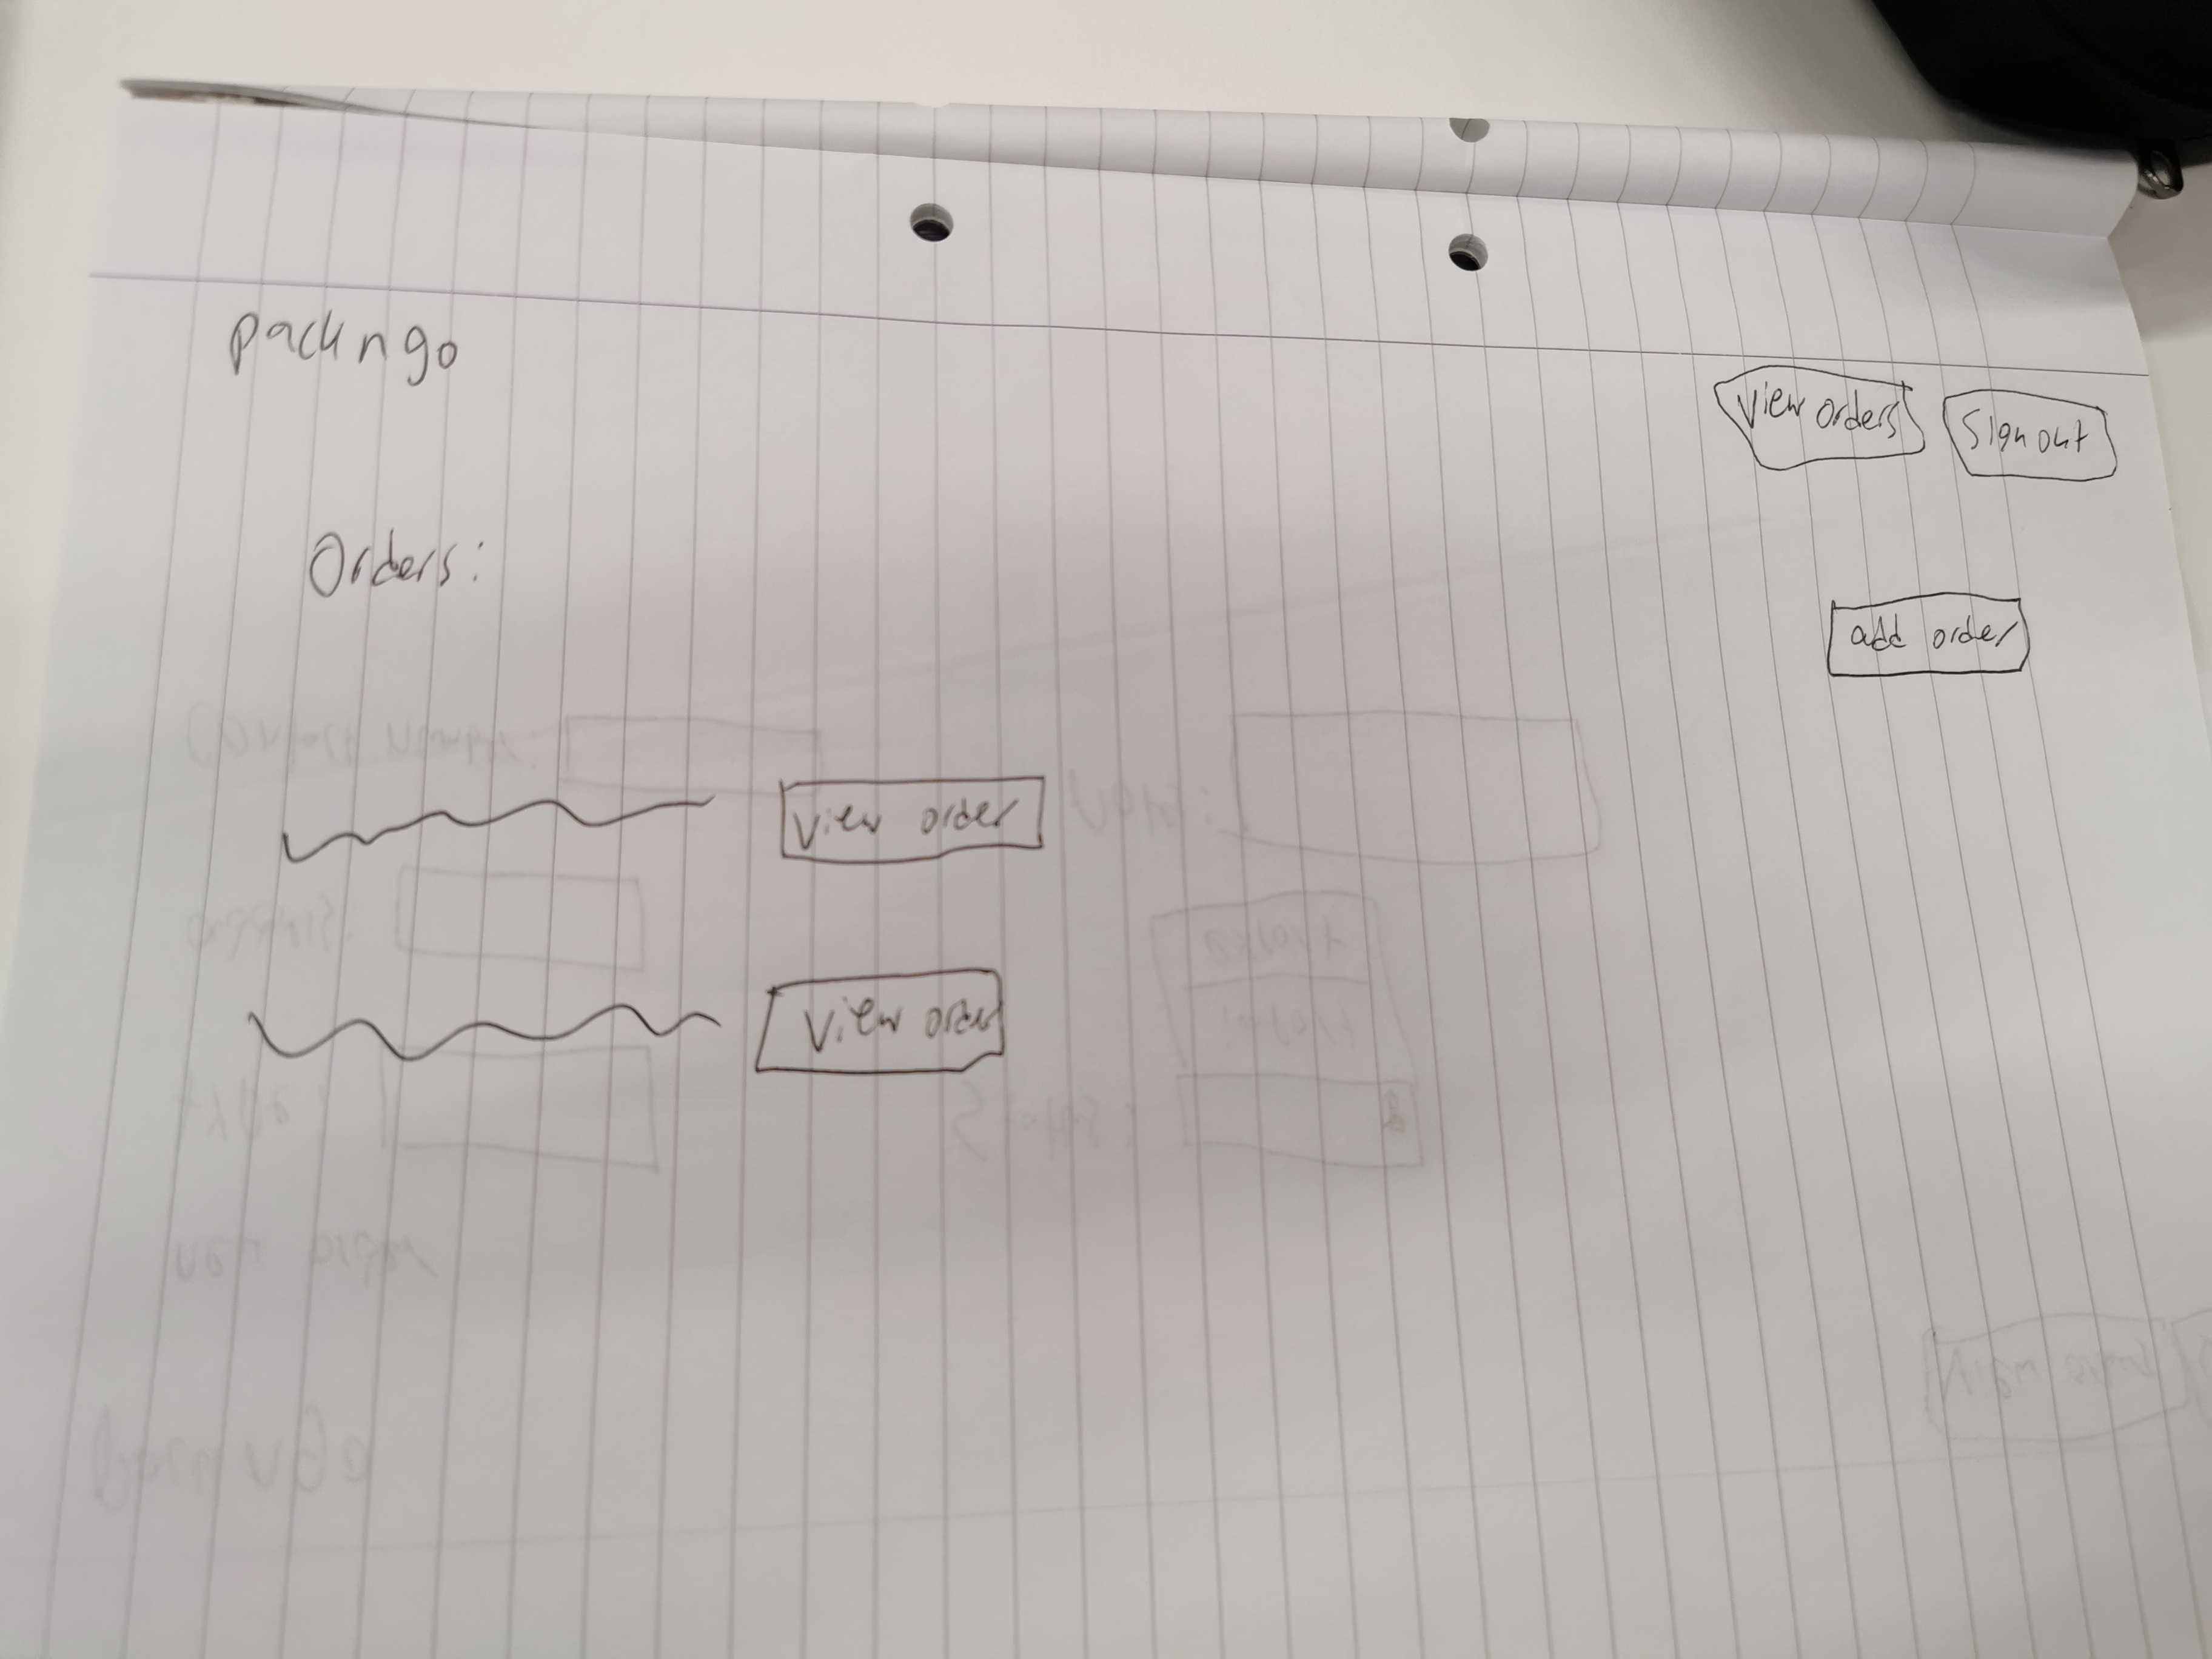 packngo
View orders
Sign out
Orders:
add order
View order
View order